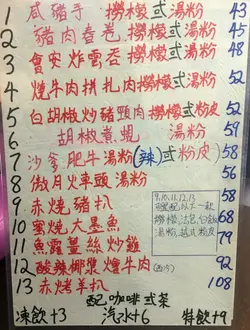 1 咸豬手 撈檬或湯粉 43
2 豬肉春卷 撈檬或湯粉 45
3 會安炸雲吞 撈檬或湯粉 48
4 燒牛肉拼扎肉撈檬或湯粉 52
5 白胡椒炒豬頸肉撈檬或粉皮 52
6 胡椒煮蜆 湯粉 59
7 沙爹肥牛湯粉(辣)或粉皮 58
8 傲月火車頭 湯粉 56
9 赤燒豬扒 58
10 蜜燒大墨魚 68
11 魚露薑絲炒雞 79
12 酸辣椰漿燴牛肉 92
13 赤烤羊扒 108
9.10.11.12.13
配咖啡或茶
凍飲+3 汽水+6 特飲+9